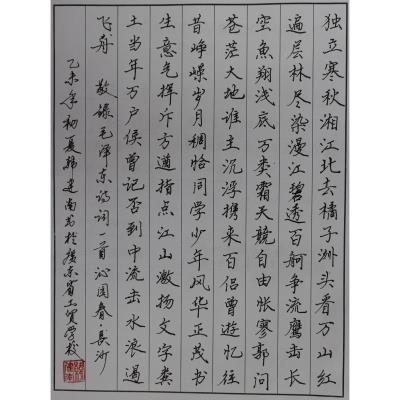 独立寒秋湘江北去橘子洲头看万山红
遍层林尽染漫江碧透百舸争流鹰击长
空魚翔浅底万类霜天競自由怅寥郭问
苍茫大地谁主沉浮携来百侣曾遊忆往
昔峥嵘岁月稠恰同学少年风华正茂书
生意气挥斥方遒指点江山激扬文字粪
土当年万户侯曾记否到中流击水浪遏
飞舟 敬録毛泽东诗词一首沁园春·長沙
乙未年初夏韩建南书於广东省工贸学校